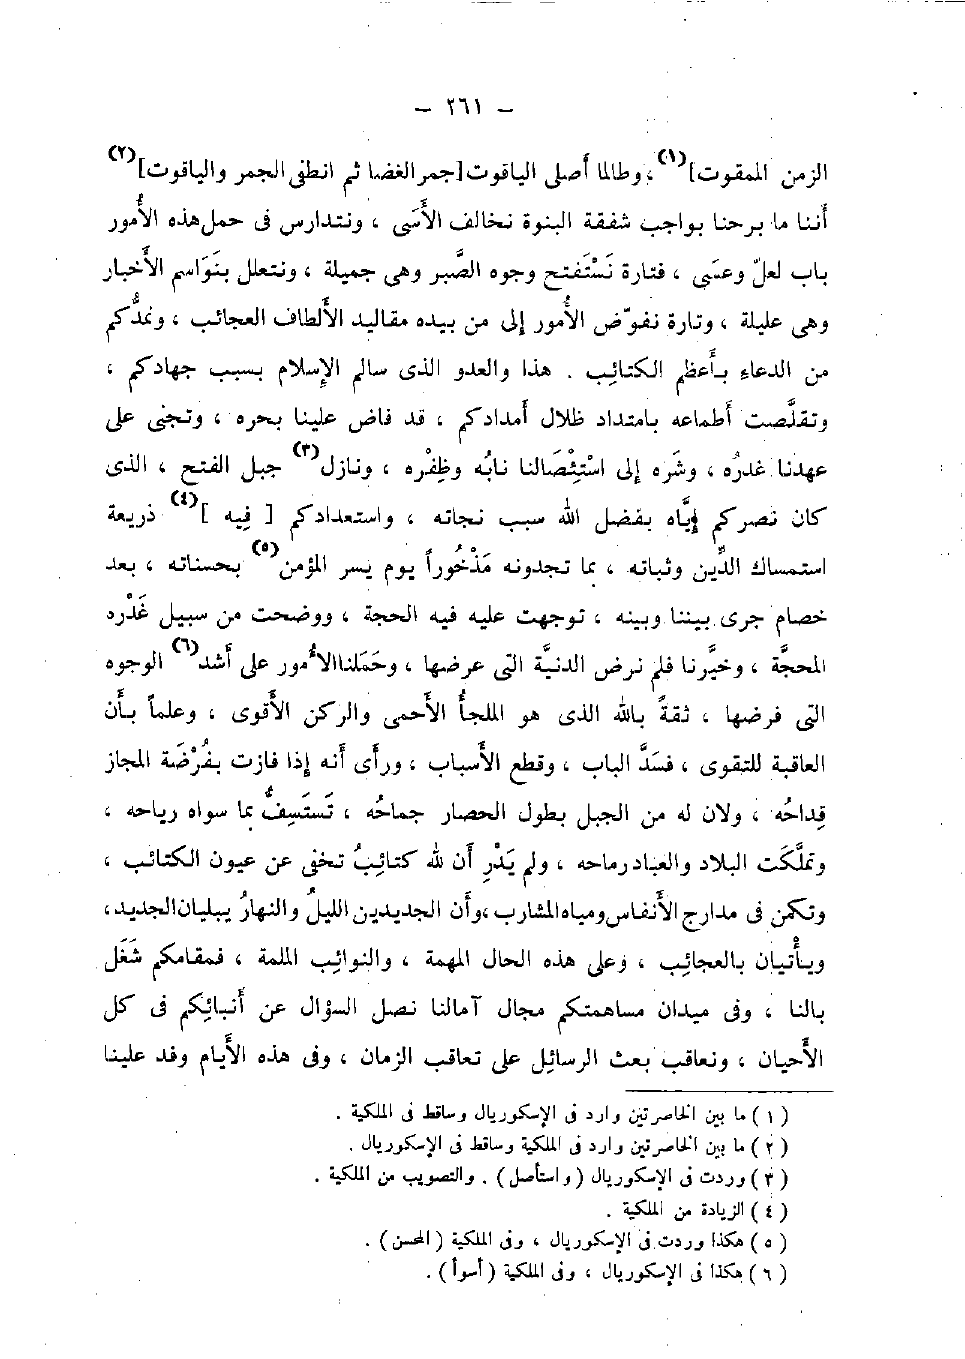 — ٢٦١ —
الزمن الممقوت](١)، وطالما أصلى الياقوت [جمر الغضا ثم انطفى الجمر والياقوت](٢)
أننا ما برحنا بواجب شفقة البنوة نخالف الأُسَى ، ونتدارس فى حمل هذه الأُمور
باب لعلّ وعسَى ، فتارة نَسْتَفتح وجوه الصَّبر وهى جميلة ، ونتعلل بنَوَاسم الأَخبار
وهى عليلة ، وتارة نفوّض الأُمور إلى من بيده مقاليد الأَلطاف العجائب ، ونمدُّكم
من الدعاءِ بأَعظم الكتائِب . هذا والعدو الذى سالم الإِسلام بسبب جهادكم ،
وتقلَّصت أَطماعه بامتداد ظلال أَمدادكم ، قد فاض علينا بحره ، وتجنى على
عهدنا غدرُه ، وشَره إلى اسْتِئْصَالنا نابُه وظِفْره ، ونازل(٣) جبل الفتح ، الذى
كان نصركم إيَّاه بفضل الله سبب نجاته ، واستعدادكم [ فِيه ](٤) ذريعة
استمساك الدِّين وثباته ، بما تجدونه مَذْخُوراً يوم يسر المؤمن(٥) بحسناته ، بعد
خصام جرى بيننا وبينه ، توجهت عليه فيه الحجة ، ووضحت من سبيل غَدْره
المحجَّة ، وخيَّرنا فلم نرض الدنيَّة التى عرضها ، وحَمَلنا الأُمور على أَشد(٦) الوجوه
التى فرضها ، ثقةً بالله الذى هو الملجأُ الأَحمى والركن الأَقوى ، وعلماً بأَن
العاقبة للتقوى ، فسَدَّ الباب ، وقطع الأَسباب ، ورأَى أَنه إذا فازت بفُرْضَة المجاز
قِداحُه ، ولان له من الجبل بطول الحصار جماحُه ، تَستَسِفُّ بما سواه رياحه ،
وتملَّكَت البلاد والعباد رماحه ، ولم يَدْرِ أَن لله كتائِبُ تخفى عن عيون الكتائب ،
وتكمن فى مدارج الأَنفاس ومياه المشارب ، وأَن الجديدين الليلُ والنهارُ يبليان الجديد ،
ويأْتيان بالعجائِب ، وعلى هذه الحال المهمة ، والنوائِب الملمة ، فمقامكم شَغَل
بالنا ، وفى ميدان مساهمتكم مجال آمالنا نصل السؤال عن أَنبائِكم فى كل
الأَحيان ، ونعاقب بعث الرسائل على تعاقب الزمان ، وفى هذه الأَيام وفد علينا
( ١ ) ما بين الخاصرتين وارد فى الإسكوريال وساقط فى الملكية .
( ٢ ) ما بين الخاصرتين وارد فى الملكية وساقط فى الإسكوريال .
( ٣ ) وردت فى الإسكوريال (واستأصل) . والتصويب من الملكية .
( ٤ ) الزيادة من الملكية .
( ٥ ) هكذا وردت فى الإسكوريال ، وفى الملكية (المحسن) .
( ٦ ) هكذا فى الإسكوريال ، وفى الملكية (أسوأ) .